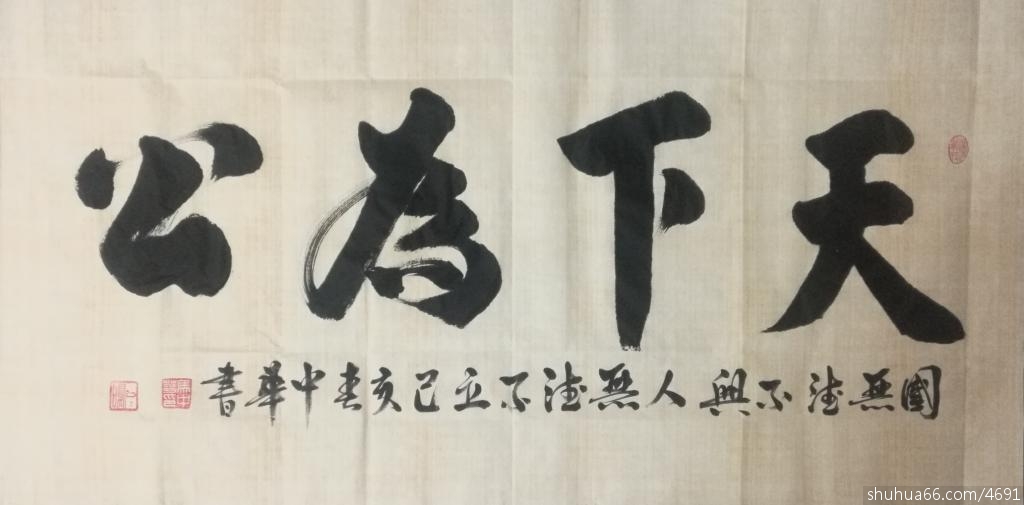 天下為公
國無德不興人無德不立己亥春中華書
shuhua66.com/4691